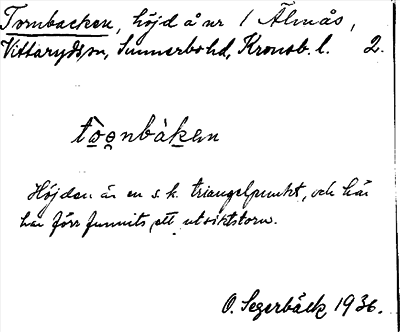 Tornbacken, höjd å nr 1 Älmås,
Vittaryds sn, Sunnerbo hd, Kronob. l. 2.
to̠o̠nbàkan
Höjden är en s.k. triangelpunkt, och här
har förr funnits ett utsiktstorn.
O. Segerbäck 1936.